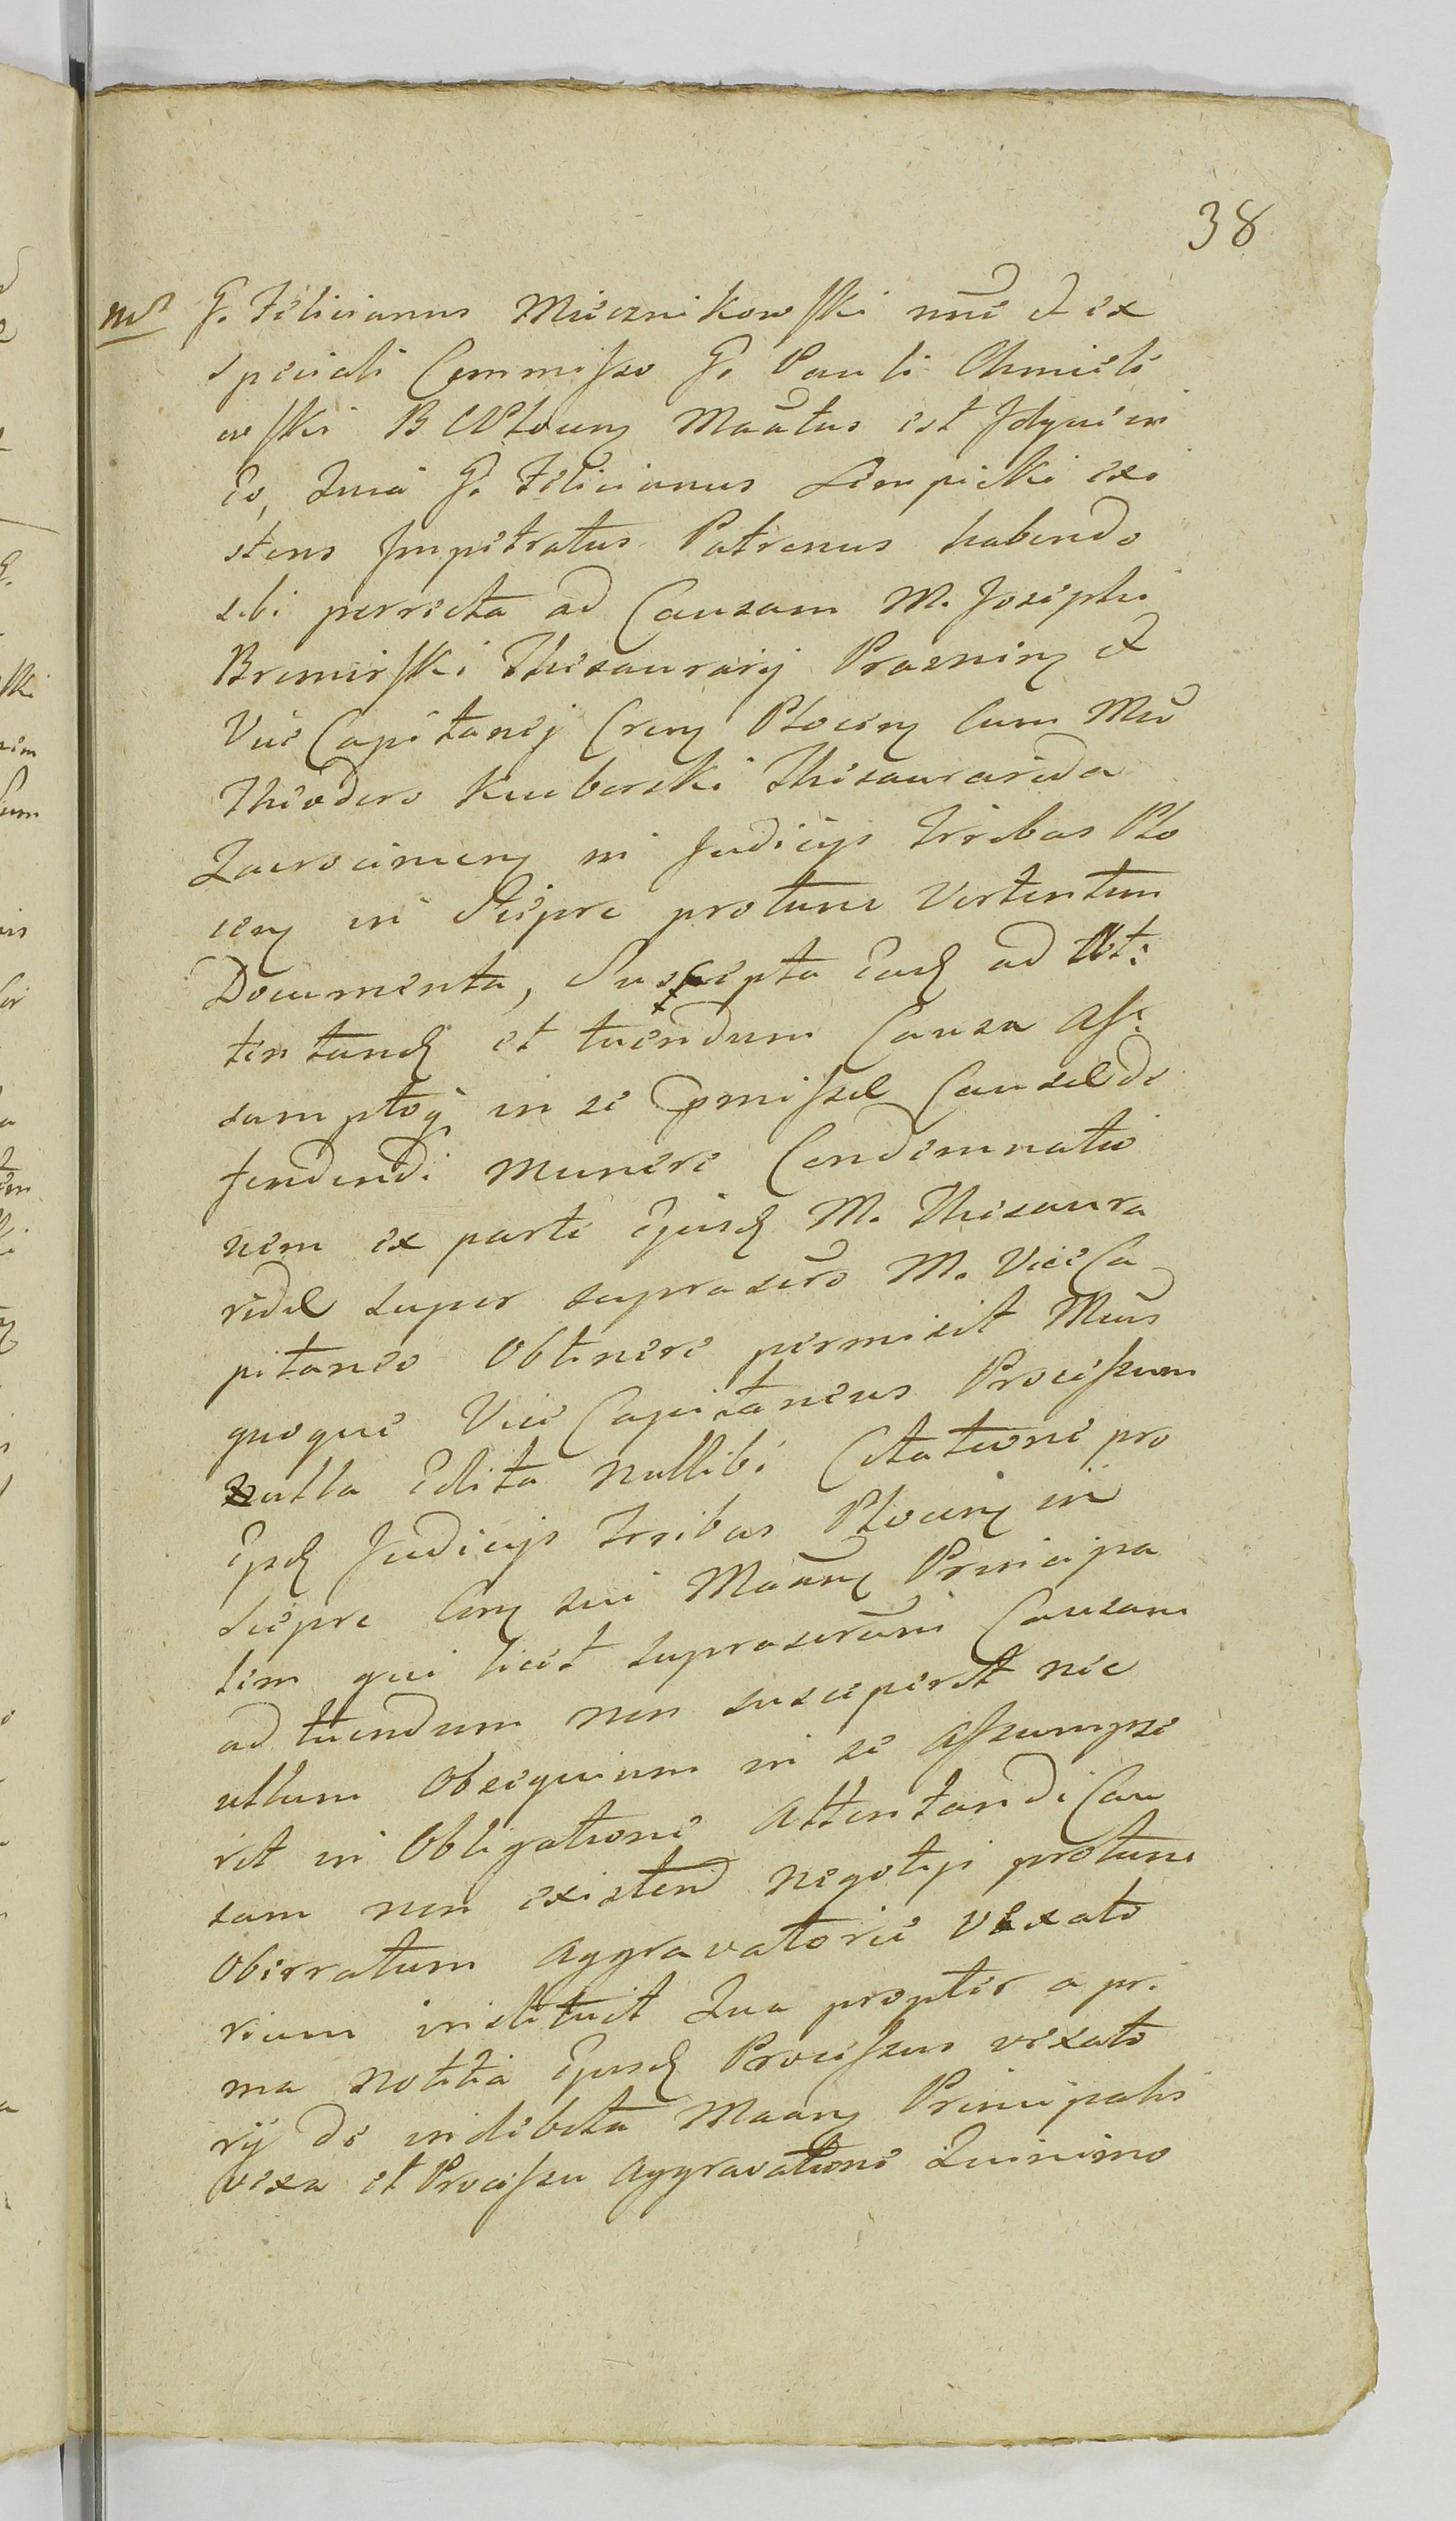 38
Md G. Felicianus Miecznikowski nne et ex
speciali Commisso G. Pauli Chmiele
wski B Ploceñ Maatus est Idque in
Eo, Quia G. Felicianus Lempicki exi
stens Impetratus Patronus habendo
sibi porrecta ad Causam M. Josephi
Bromirski Thesaurarij Prasznicen et
Vice Capitanei Cren Plocen cum Mco
Theodoro Kuiberski Thesaurarida
Zacrocimen in Judicijs Trribus Plo
cen in Sierpc protunc Vertentem
Documenta, Suscepta Ead ad Att:
tentand et tuendum Causa Ass:
sumptoq in se pmissae Causae de
fendendi munere Condemnatio
nem ex parte Ejusd M. Thesaura
ridae super suprascro M. Vice Ca
pitaneo Obtinere permisit Mcus
quoque Vice Capitaneus Processum
nulla Edita nullibi Citatione pro
Ejsd Judicijs Trribus Plocen in
Sierpc Con sui Maanten Principa
lem qui licet suprascram Causam
ad tuendum non susceperit nec
ullum Obsequium in se assumpse
rit in Obligatione Attentandi Cau
sam non existend negotij protunc
Oberratum aggravatorie vexato
rium instituit Qua propter a pri
ma notitia Ejusd Processus vexato
rij de indebita Maan Principalis
vexa et Processu aggravatione Quinimo